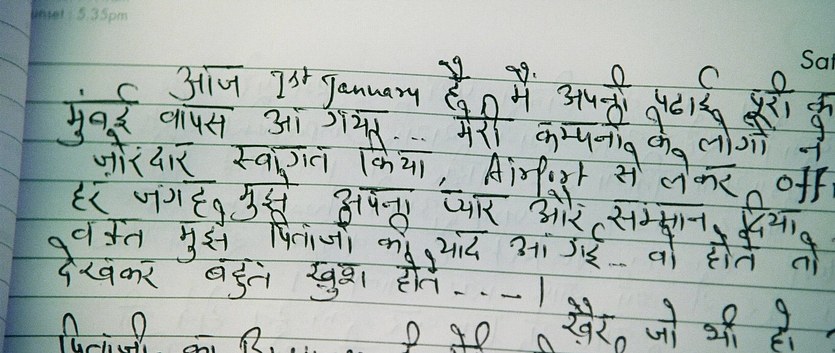 unset : 5.35pm
Sat
आज 1st January है, मैं अपनी पढाई पूरी क
मुंबई वापस आ गया... मेरी कम्पनी के लोगों ने
जोरदार स्वागत किया, Airport से लेकर off
हर जगह मुझे अपना प्यार और सम्मान दिया,
वक्त मुझे पिताजी की याद आ गई... वो होते तो
देखकर बहुत खुश होते....।
खैर जो भी हो
पिताजी का